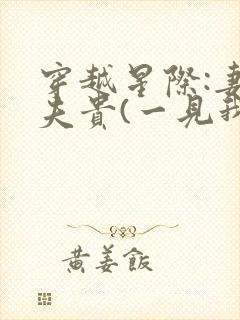 穿越星際:妻
夫貴(一見我
黃姜飯